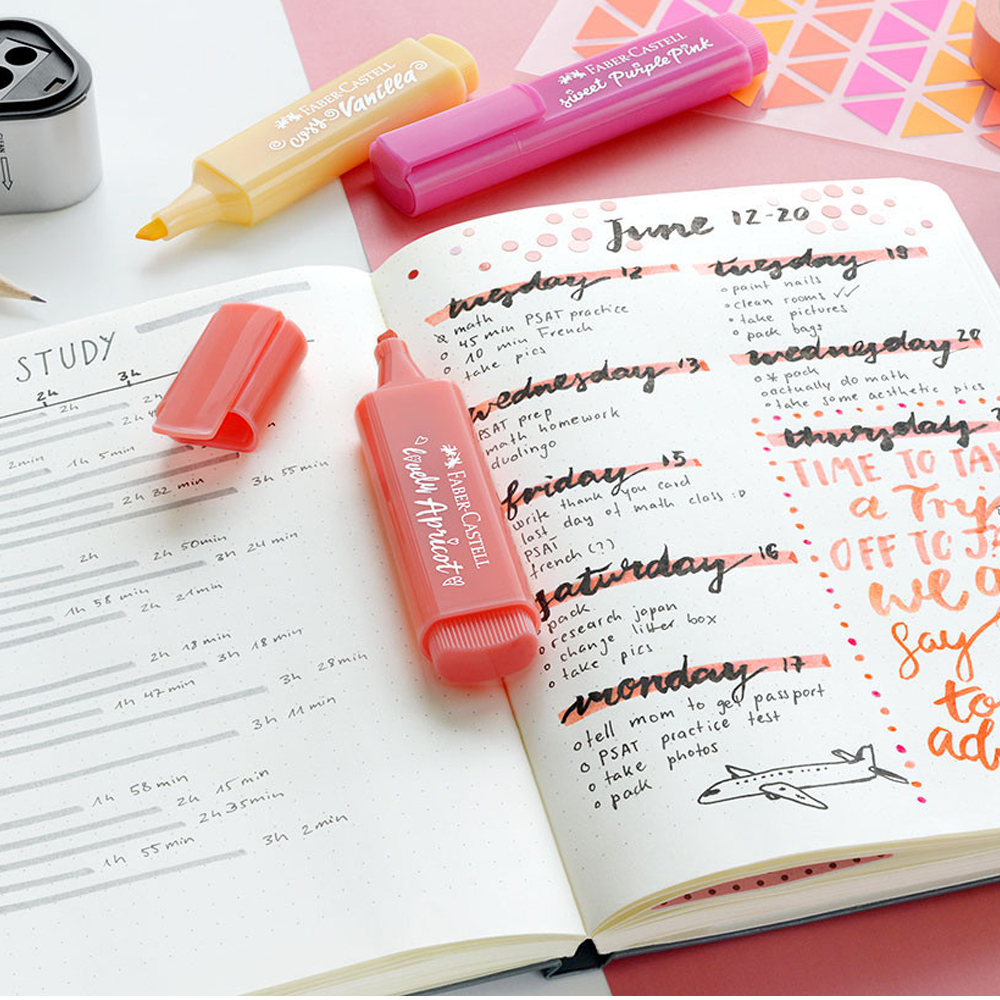 CLEAN
FABER-CASTELL
cosy Vanilla
FABER-CASTELL
sweet Purple Pink
FABER-CASTELL
lovely Apricot
STUDY
2h
3h
2h
2h
2min
1h 5min
3h 55min
2h 32 min
2h
2h 50min
3h 24 min
1h 58 min
2h 21min
2h 18min
3h 18 min
1h 47 min
3h 28min
3h 11 min
1h 58min
2h 15 min
2h 35min
1h 55 min
3h 2min
June 12-20
tuesday 12
math
45 min PSAT practice
10 min French
take pics
wednesday 13
PSAT prep
math homework
duolingo
friday 15
write thank you card
last day of math class :D
PSAT
french (?)
saturday 16
pack
research japan
change litter box
take pics
monday 17
tell mom to get passport
PSAT practice test
take photos
pack
tuesday 19
paint nails
clean rooms ✓✓
take pictures
pack bags
wednesday 20
* pack
actually do math
take some aesthetic pics
thursday
TIME TO TA
a Trip
OFF TO JA
we a
say
to
ad